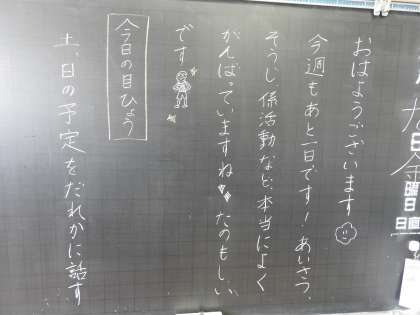 九日金曜日
日直
おはようございます
今週もあと一日です!あいさつ、
そうじ、係活動など、本当によく
がんばっていますね。たのもしい
です
今日の目ひょう
土、日の予定をだれかに話す